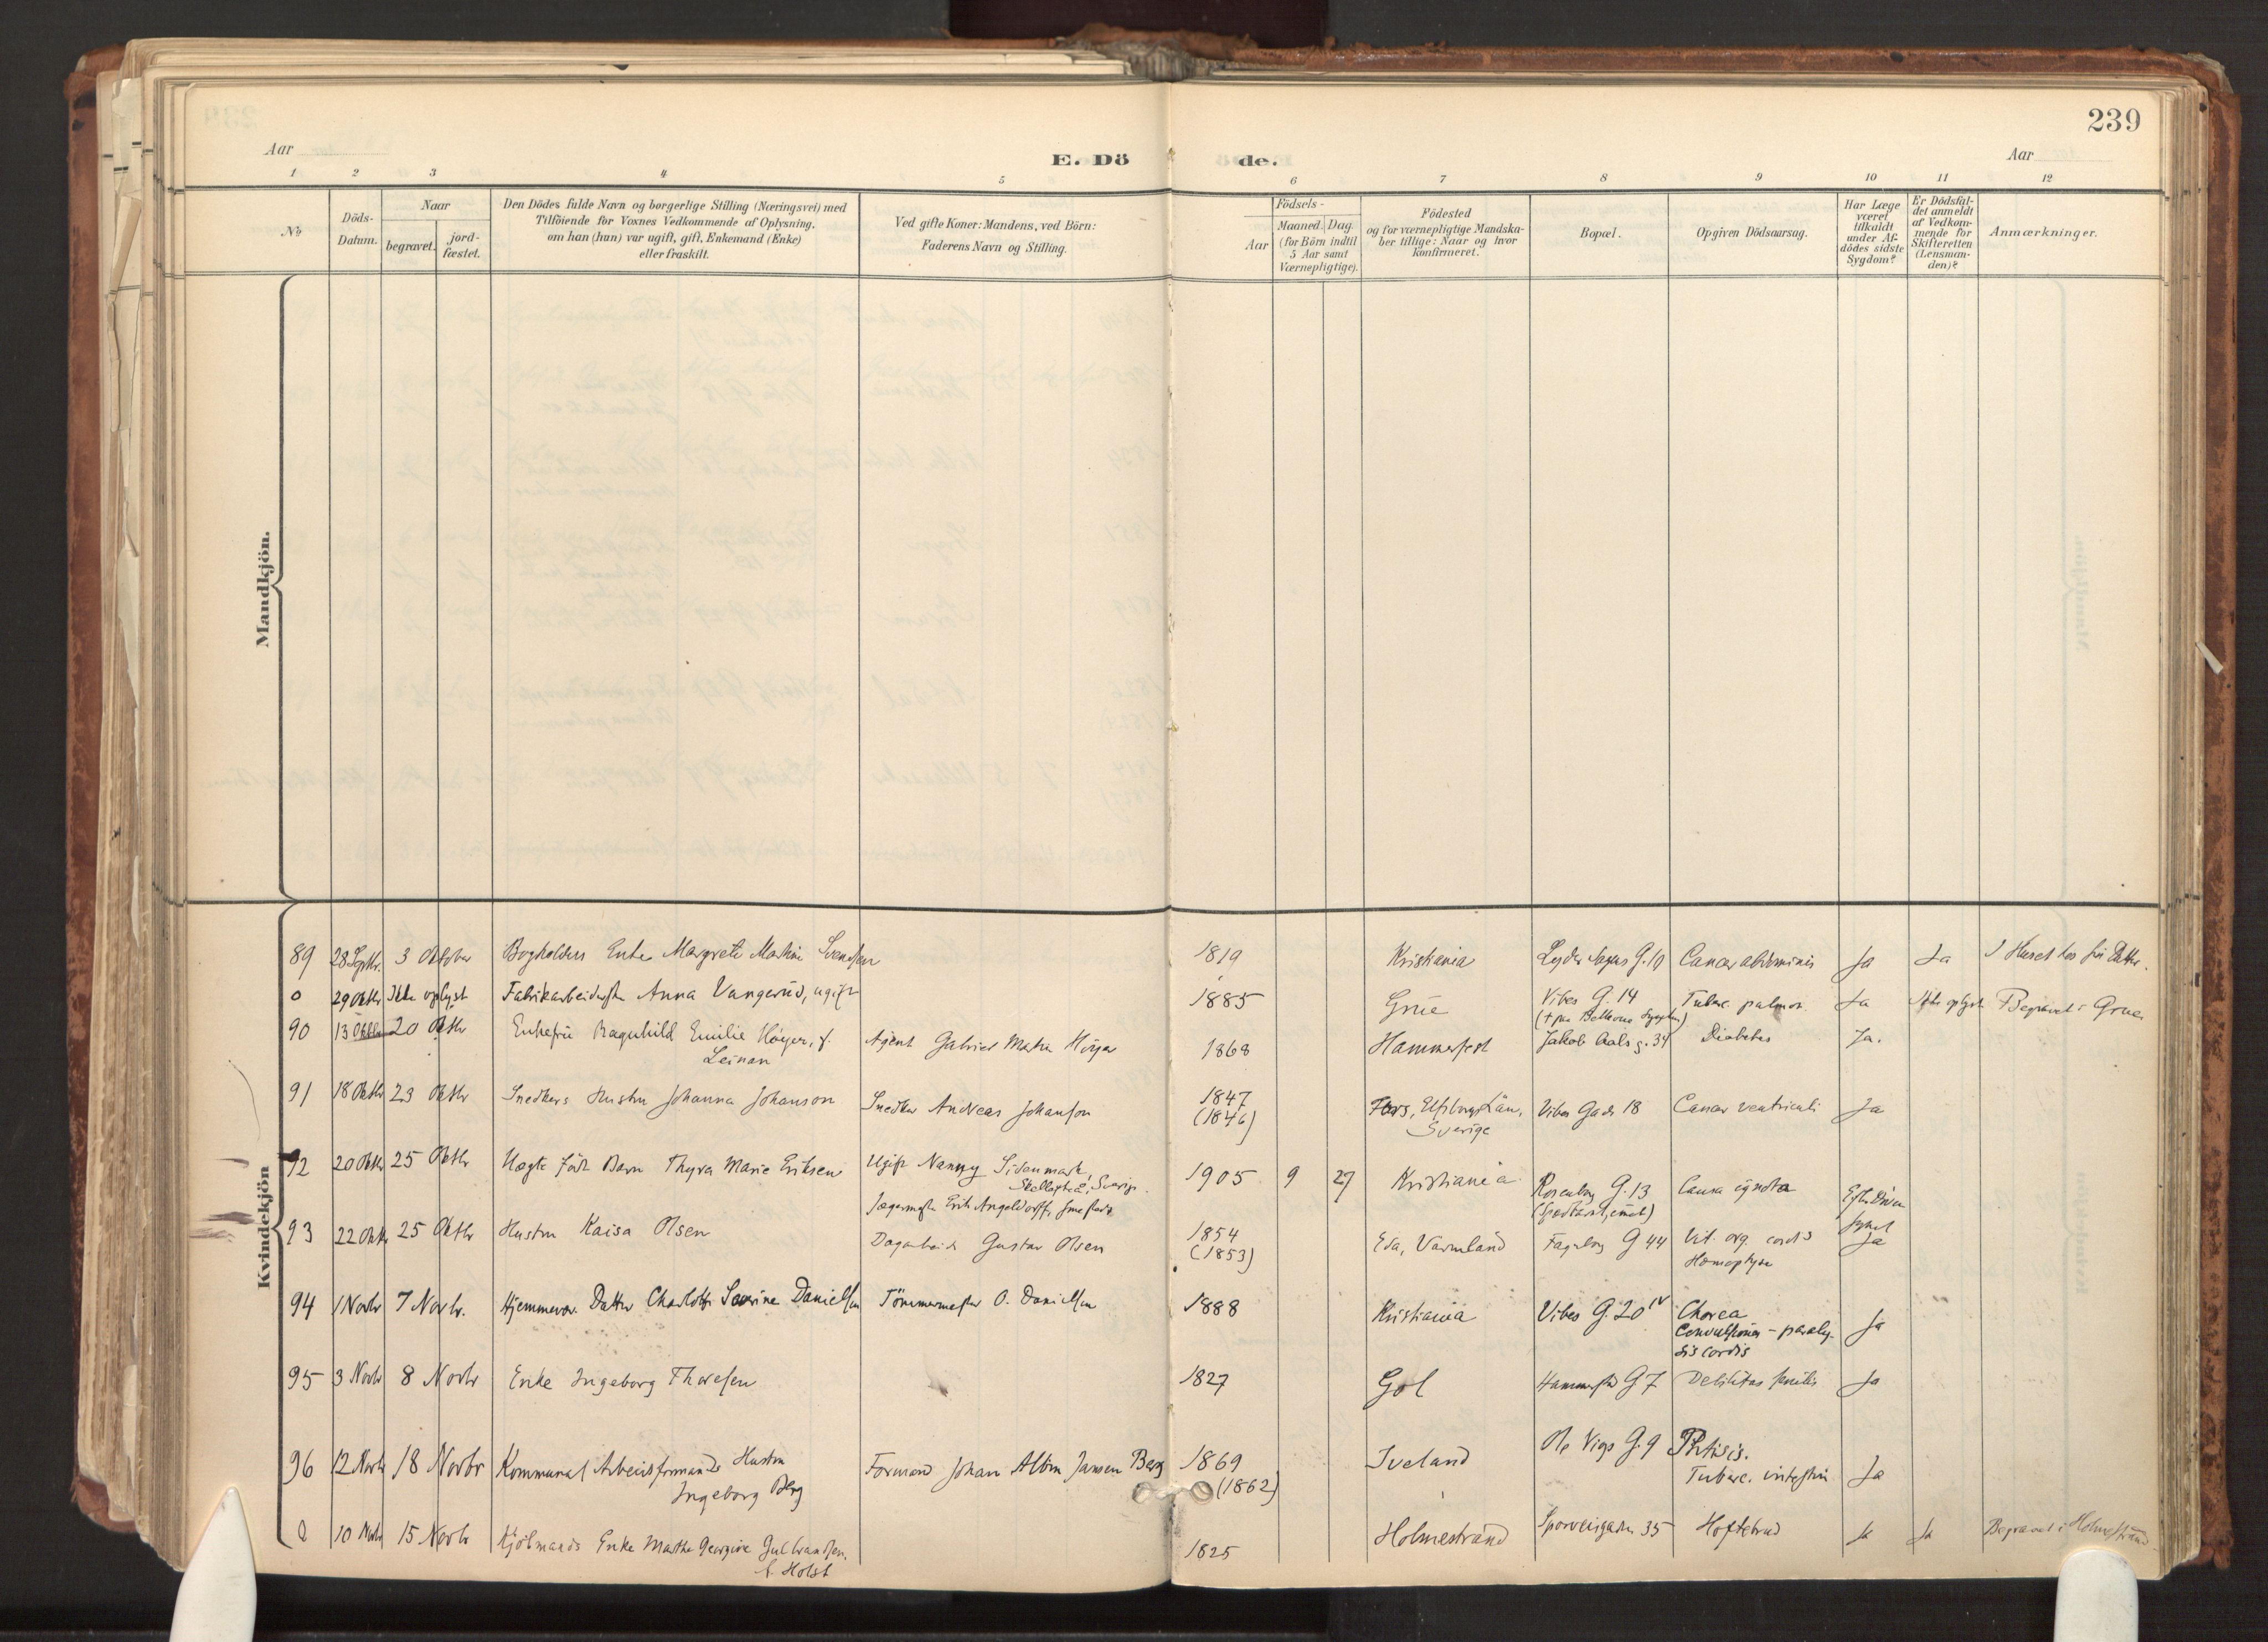 239
Aar
E. Dö de.
Aar
1 2 3 4 5 6 7 8 9 10 11 12
No
Döds-
Datum.
Naar
begravet.
jord-
fæstet.
Den Dödes fulde Navn og borgerlige Stilling (Næringsvei) med
Tilföiende for Voxnes Vedkommende af Oplysning,
om han (hun) var ugift, gift, Enkemand (Enke)
eller fraskilt.
Ved gifte Koner: Mandens, ved Börn:
Faderens Navn og Stilling.
Födsels-
Aar
Maaned. Dag.
(for Börn indtil
5 Aar samt
Værnepligtige).
Födested
og for værnepligtige Mandska-
ber tillige: Naar og hvor
konfirmeret.
Bopæl.
Opgiven Dödsaarsag.
Har Læge
været
tilkaldt
under Af-
dödes sidste
Sygdom?
Er Dödsfal-
det anmeldt
af Vedkom-
mende for
Skifteretten
(Lensman-
den)?
Anmærkninger.
Mandkjön.
Kvindekjön
89 28 Septbr. 3 Oktober Bogholders Enke Margrete Martine Svendsen 1819 Kristiania Lyder Sagens G. 10 Cancer abdominis Ja Ja I Huset hos sin Datter.
0 29 Oktbr Ikke oplyst Fabrikarbeiderske Anna Vangerud, ugift 1885 Grue Vibes G. 14 Tuberc. palmon. Ja Ikke oplyst Begravet i Grue
(+ paa
90 13 Oktbr 20 Oktbr Enkefru Ragnhild Emilie Höyer, f.
Leinan
Agent Gabriel Höyer 1868 Hammerfest Jakob Aals g. 34 Diabetes Ja.
91 18 Oktbr 23 Oktbr Snedkers Hustru Johanna Johanson Snedker Andreas Johanson 1847
(1846)
Fors, Elfsborgs Län,
Sverige
Vibes Gade 18 Cancer ventriculi Ja
92 20 Oktbr 25 Oktbr Uægte födt Barn Thyra Marie Eriksen Ugift Nanny Sidenmark,
Skellefteå, Sverige.
Jægermester Erik
1905 9 27 Kristiania Rosenborg G. 13 Causa ignota Efter Döden
synet
93 22 Oktbr 25 Oktbr Hustru Kaisa Olsen Dagarbeid. Gustav Olsen 1854
(1853)
Eda, Värmland Fagerborg G 44 Vit. org. cordis
Hæmoptyse
Ja
94 1 Novbr 7 Novbr. Hjemmevær. Datter Charlotte Severine Danielsen Tömmermester O. Danielsen 1888 Kristiania Vibes G. 20 IV Chorea
Convulsioner - paraly-
sis cordis
Ja
95 3 Novbr 8 Novbr Enke Ingeborg Thoresen 1827 Gol Hammerstad G 7 Debilitas senilis Ja
96 12 Novbr 18 Novbr Kommunal Arbeidsformands Hustru
Ingeborg Berg
Formand Johan Albin Jansen Berg 1869
(1862)
Iveland Ole Vigs G. 9 Phtisis.
Tuberc. intestin
Ja
0 10 Novbr 15 Novbr Kjölmands Enke Marthe Georgine Gulbrandsen.
f. Holst
1825 Holmestrand Sporveisgaden 35 Hoftebrud Ja Ja Begravet i Holmestrand